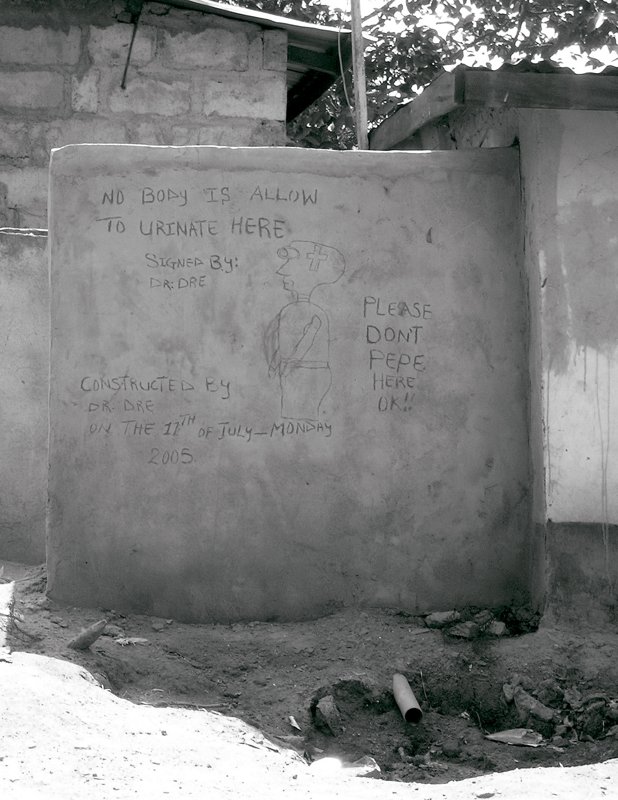 NO BODY IS ALLOW
TO URINATE HERE
SIGNED BY:
DR: DRE
PLEASE
DONT
PEPE
HERE
OK!!
CONSTRUCTED BY
DR. DRE
ON THE 11TH OF JULY_MONDAY
2005